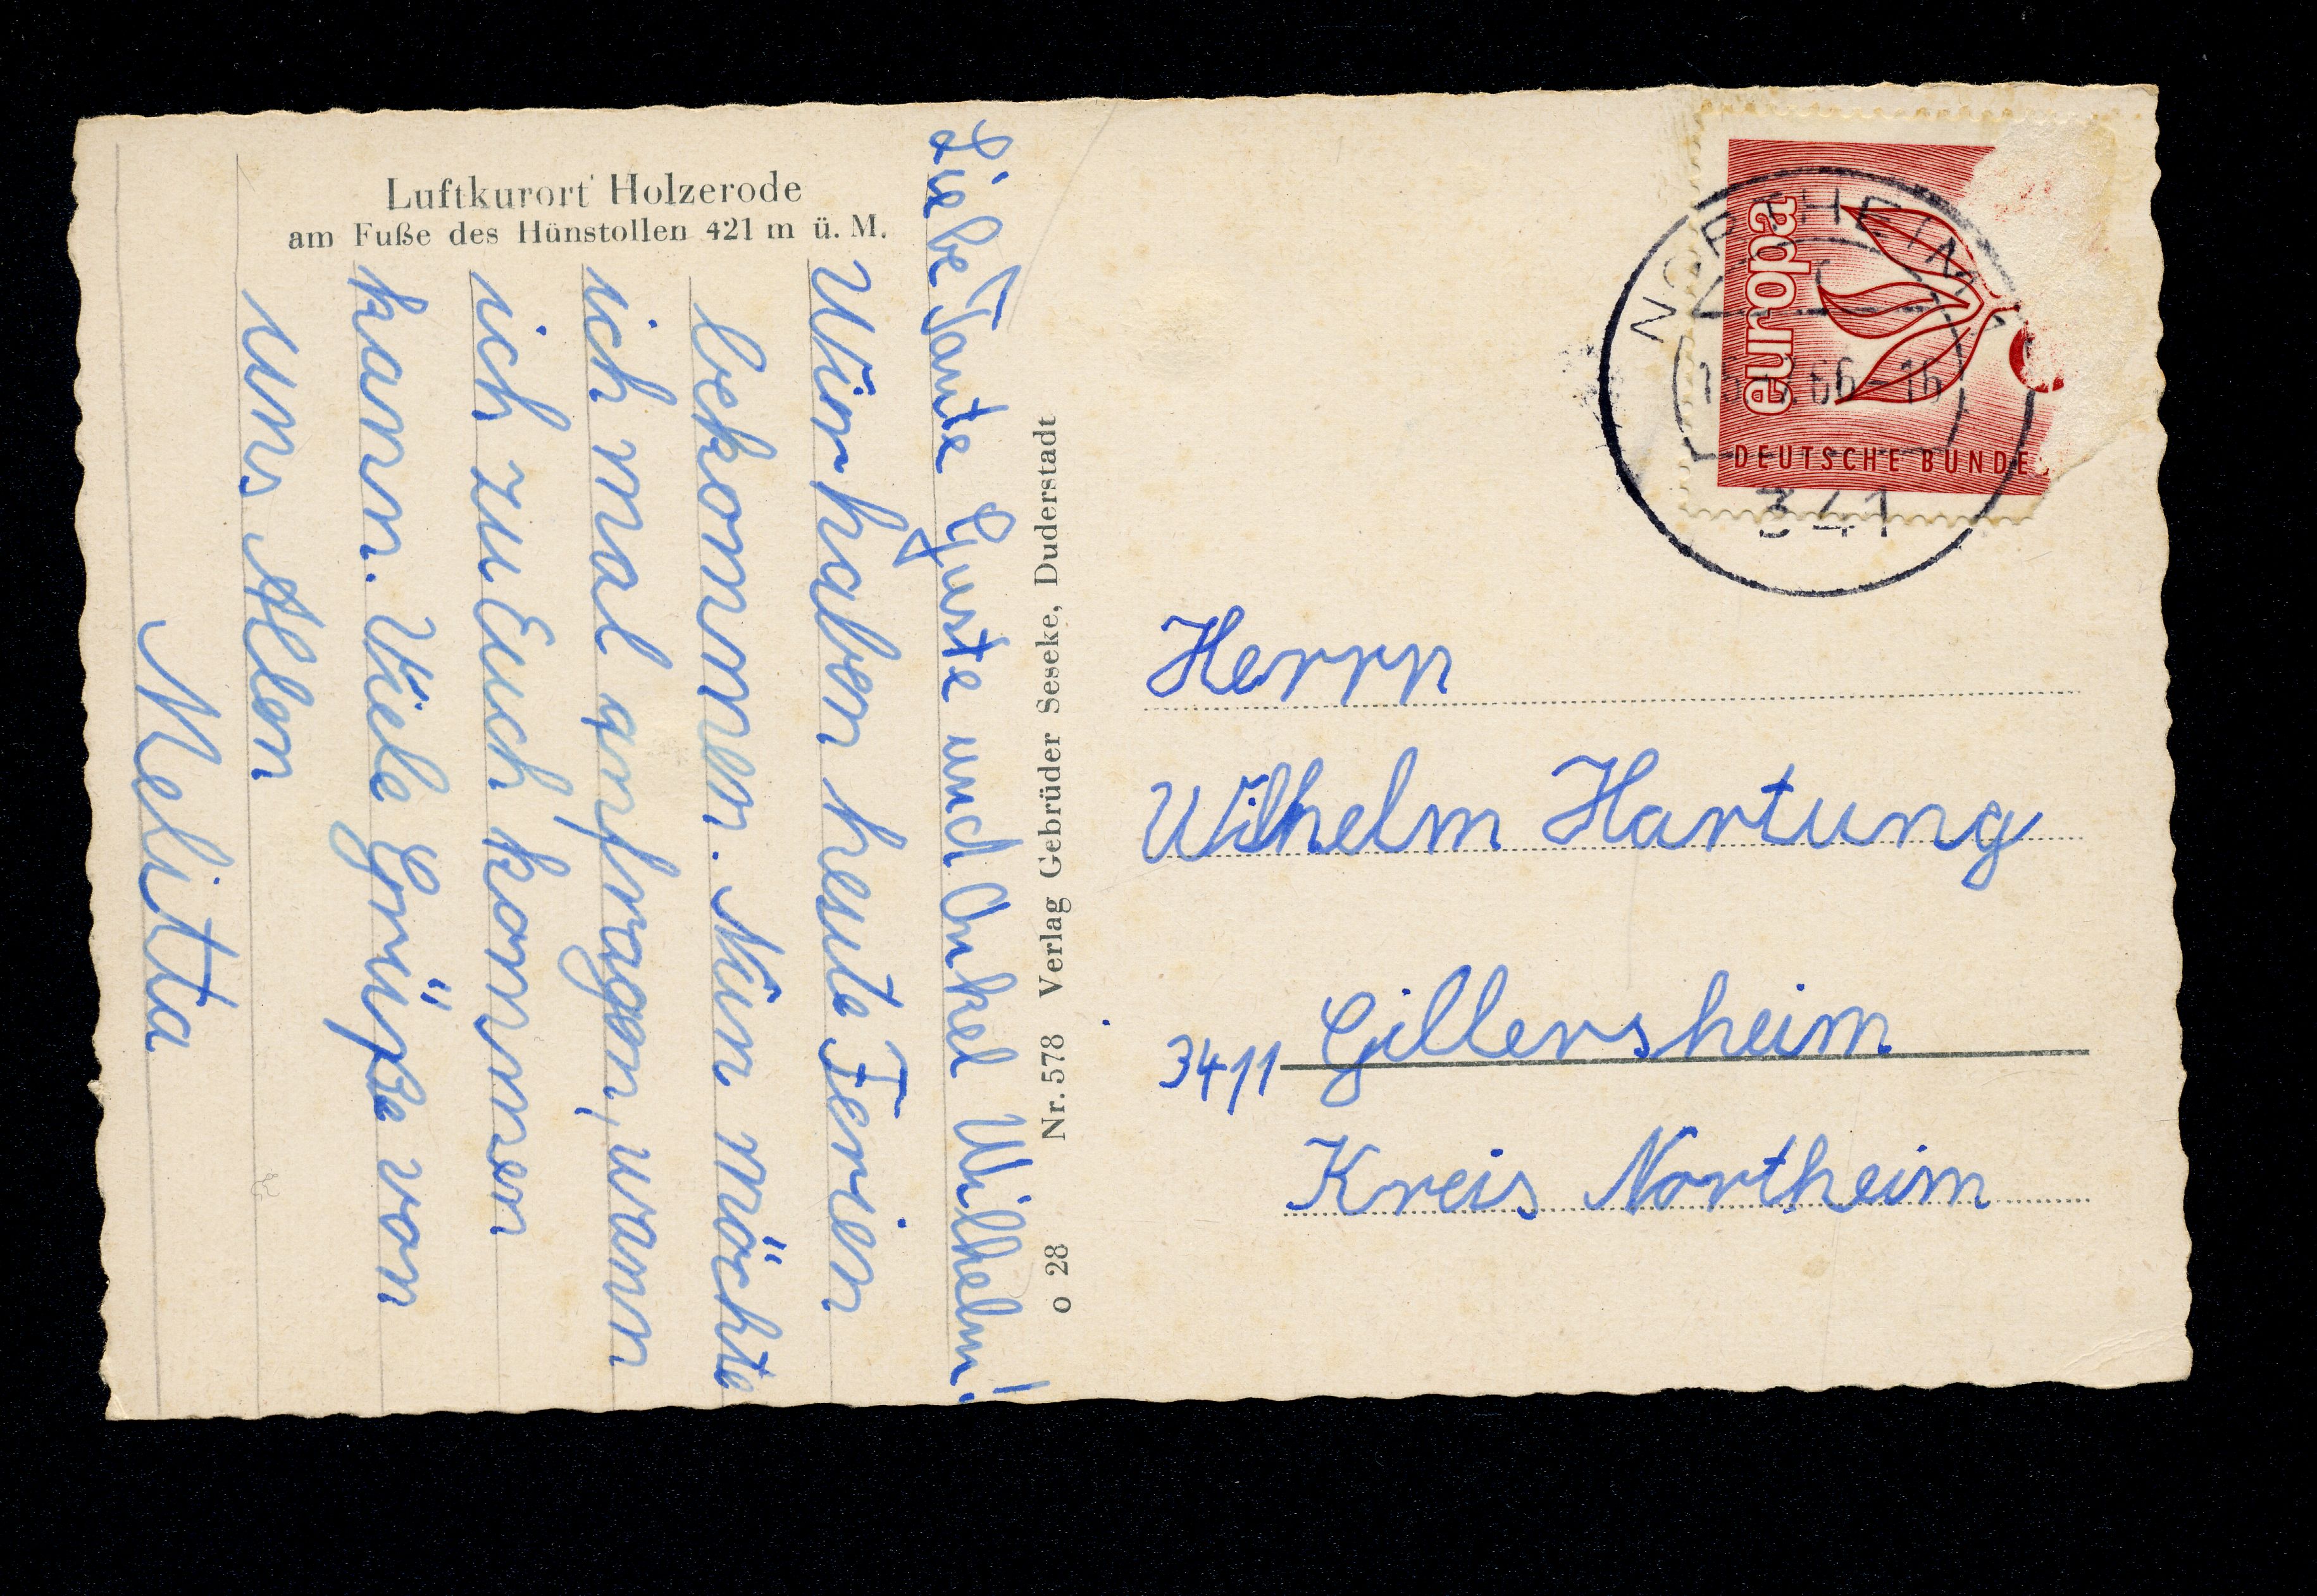 Luftkurort Holzerode
am Fuße des Hünstollen 421 m ü. M.
Liebe Tante Guste und Onkel Wilhelm!
Wir haben heute Ferien
bekommen. Nun möchte
ich mal anfragen, wann
ich zu Euch kommen
kann. Viele Grüße von
uns Allen
Melitta
o 28 Nr. 578 Verlag Gebrüder Seseke, Duderstadt
europa
DEUTSCHE BUNDE
NORTHEIM
66-16
341
Herrn
Wilhelm Hartung
3411 Gillersheim
Kreis Northeim